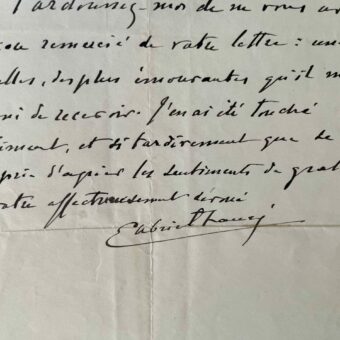 Pardonnez-moi de ne vous av
remercié de votre lettre : une
elles, des plus émouvantes qu'il m'
de recevoir. J'en ai été touché
et si tardivement que je
prie d'agréer les sentiments de grat
votre affectueusement dévoué
Gabriel Fauré